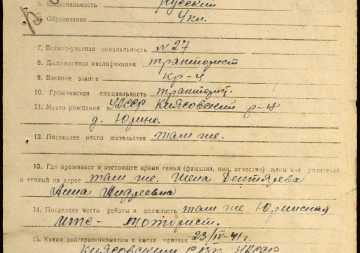 5. Национальность русский
6. Образование 4 кл.
7. Военно-учетная специальность № 27
8. Должностная квалификация тракторист
9. Военное звание кр-ц
10. Гражданская специальность тракторист.
11. Место рождения УАССР Киясовский р-н
д. Юрино.
12. Последнее место жительства там же.
13. Где проживает в настоящее время семья (фамилия, имя, отчество) жены или родителей
и точный их адрес там же. Жена Дехтярева
Анна Андреевна
14. Последнее место работы и должность там же Юринская
моторист.
15. Каким райвоенкоматом и когда призван 23/IV-41 г.
Киясовским РВК УАССР